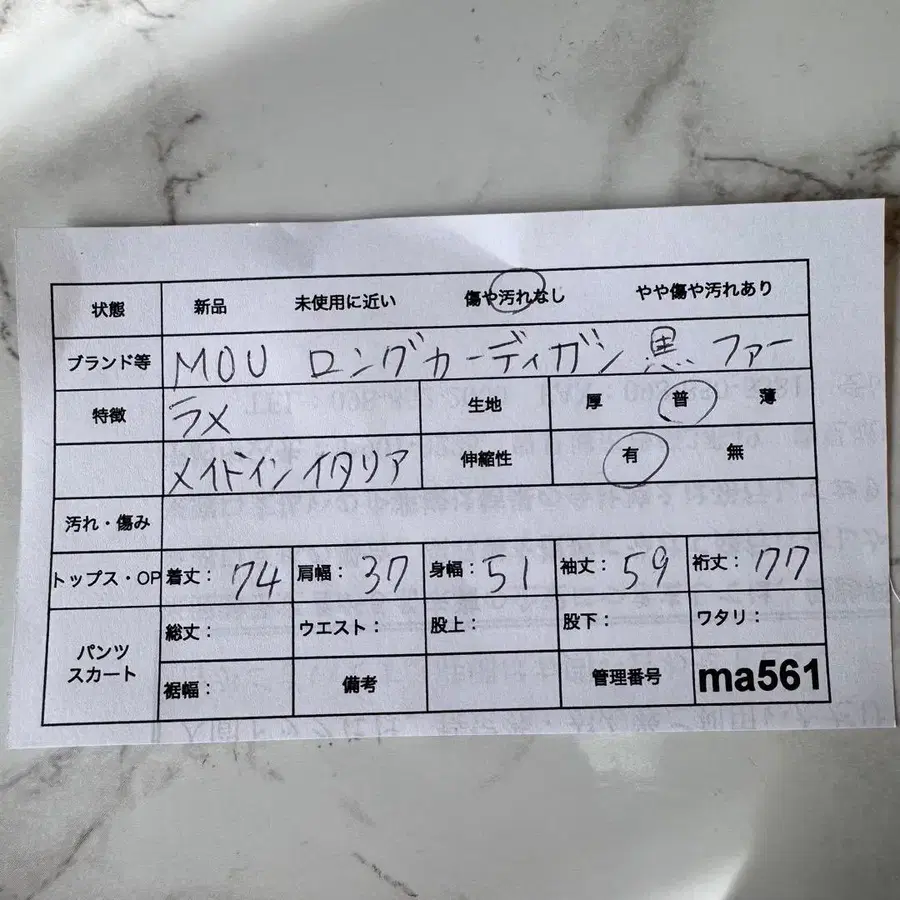 状態 新品 未使用に近い 傷や汚れなし やや傷や汚れあり
ブランド等 MOU ロングカーディガン 黒 ファー
特徴 ラメ 生地 厚 普 薄
メイドインイタリア 伸縮性 有 無
汚れ・傷み
トップス・OP 着丈: 74 肩幅: 37 身幅: 51 袖丈: 59 裄丈: 77
パンツ スカート 総丈: ウエスト: 股上: 股下: ワタリ:
裾幅: 備考 管理番号 ma561